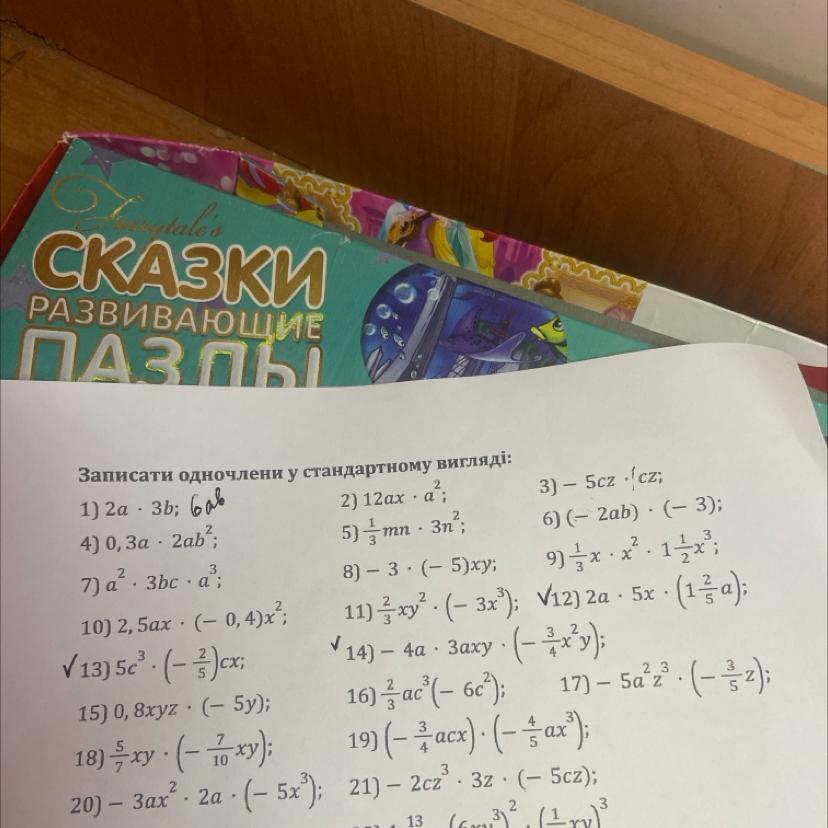 Fairytale's
СКАЗКИ
РАЗВИВАЮЩИЕ
ПАЗЛЫ
Записати одночлени у стандартному вигляді:
1) 2a · 3b; 6ab 2) 12ax · a²; 3) − 5cz · cz;
4) 0,3a · 2ab²; 5) 1/3 mn · 3n²; 6) (− 2ab) · (− 3);
7) a² · 3bc · a³; 8) − 3 · (− 5)xy; 9) 1/3 x · x² · 1 1/2 x³;
10) 2,5ax · (− 0,4)x²; 11) 2/3 xy² · (− 3x³); √12) 2a · 5x · (1 2/5 a);
√13) 5c³ · (− 2/5)cx; √14) − 4a · 3axy · (− 3/4 x²y);
15) 0,8xyz · (− 5y); 16) 2/3 ac³(− 6c²); 17) − 5a²z³ · (− 3/5 z);
18) 5/7 xy · (− 7/10 xy); 19) (− 3/4 acx) · (− 4/5 ax³);
20) − 3ax² · 2a · (− 5x³); 21) − 2cz³ · 3z · (− 5cz);